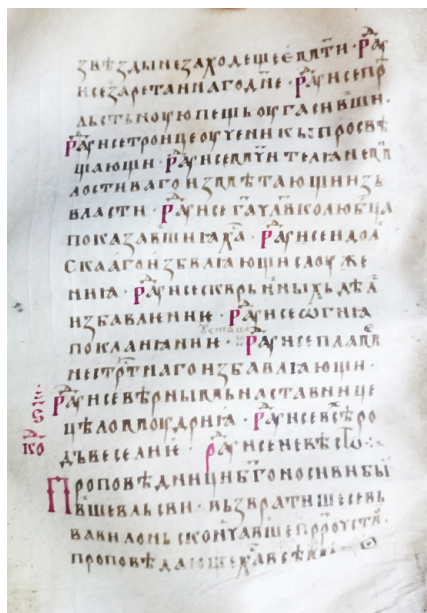 звѣзды незаходещеє мт҃и · Рад҃
исе заретаинаго дн҃е · Рад҃уисе пр҃
льстьною пещь оугасивши ·
Рад҃уисе троице оученикы просвѣ
щающи · Рад҃уисе мч҃ителꙗ нем҃
лостиваго измѣтающи изь
власти · Рад҃уисе га҃ чл҃вколюбца
показавшиꙗ ха҃ · Рад҃уисе идол҃
скааго избавлꙗющи слоуже
ниꙗ · Рад҃уисе скврьнныхь дѣл҃
избавлении · Рад҃уисе ѡгнꙗ
покланꙗнии · Рад҃уисе пламе
не стр҃тнаго избавлꙗющи ·
Рад҃уисе вѣрнымь наставнице
цѣломоудриꙗ · Рад҃уисе всѣ ро
дъ веселиє · Рад҃уисе невѣстѡ
Проповѣдници бг҃оносиви бы
вше вльсви · възвратише се вь
вавилонь скончавше прро҃уств҃
проповѣдающе ха҃ всѣмь